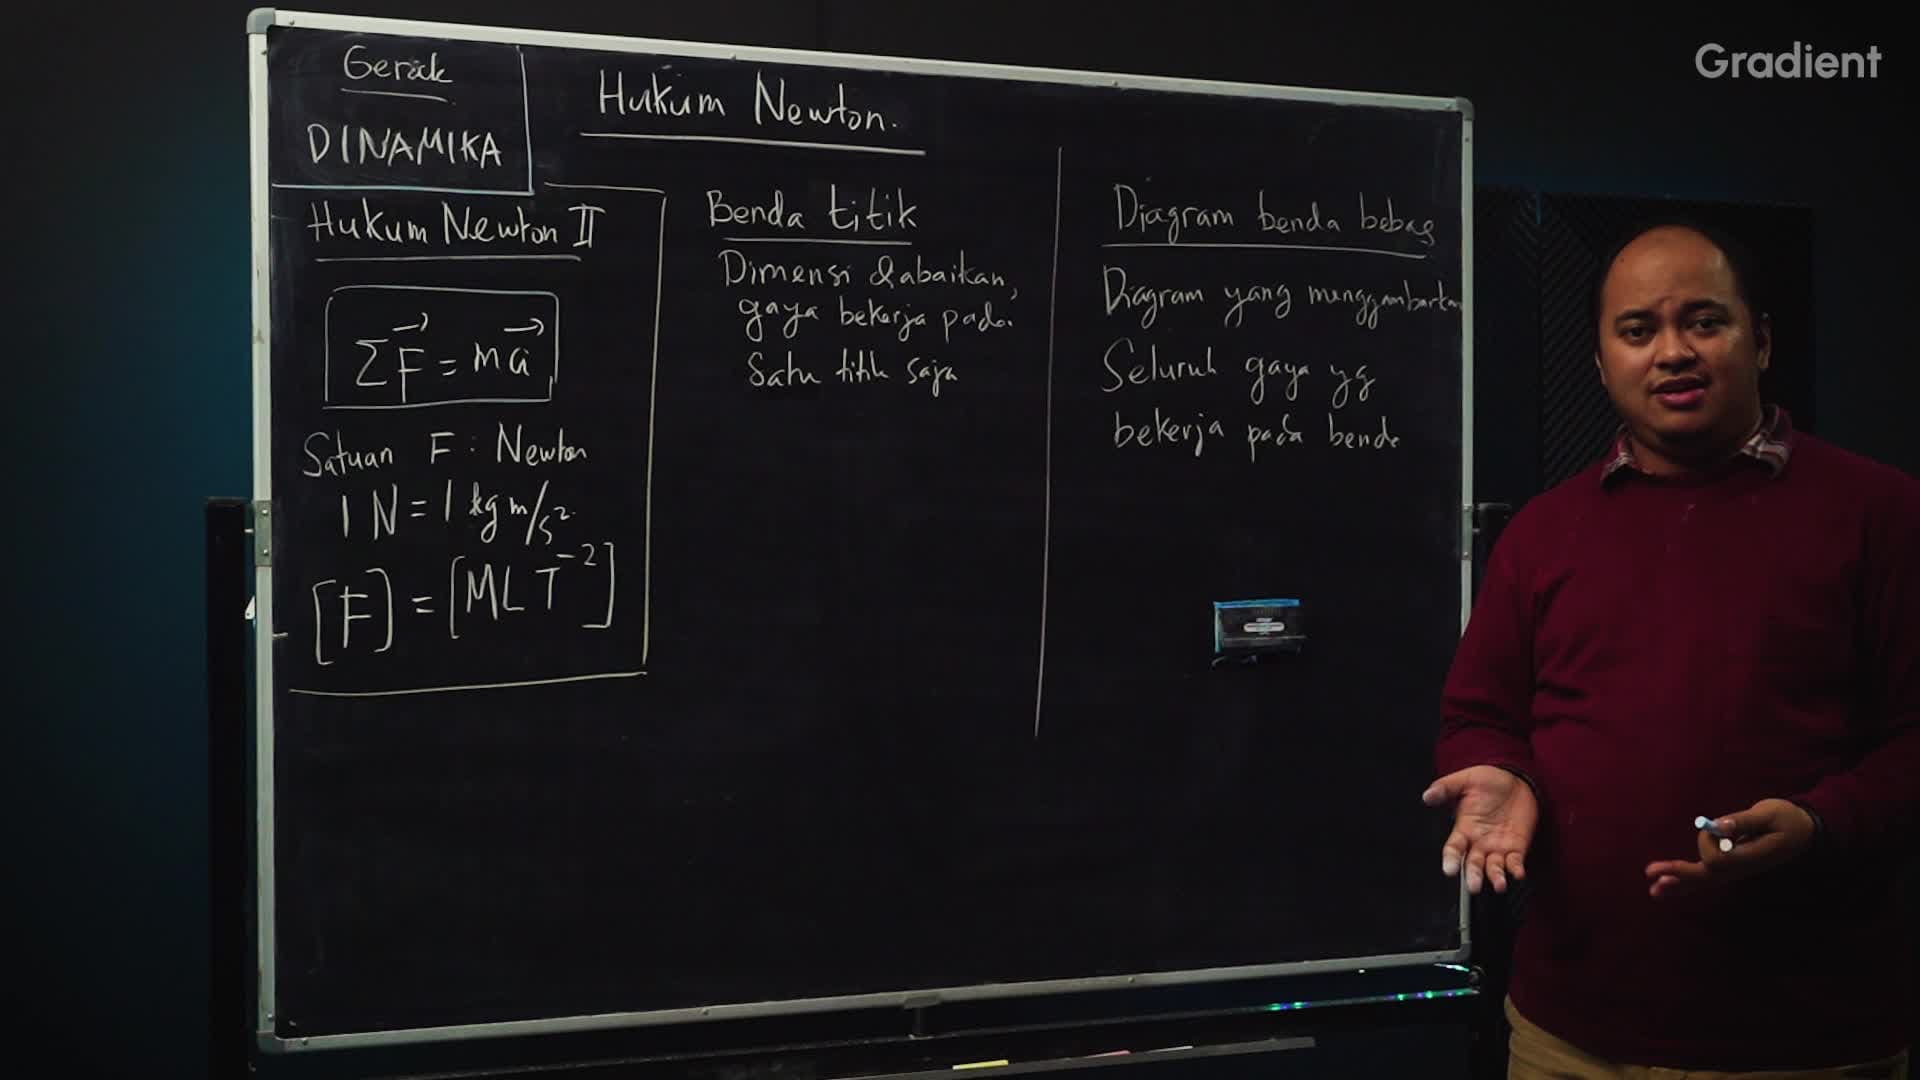 Gerak
DINAMIKA
Hukum Newton.
Hukum Newton II
ΣF⃗ = ma⃗
Satuan F : Newton
1 N = 1 kg m/s²
[F] = [MLT⁻²]
Benda titik
Dimensi diabaikan,
gaya bekerja pada
satu titik saja
Diagram benda bebas
Diagram yang menggambarkan
Seluruh gaya yg
bekerja pada benda
Gradient